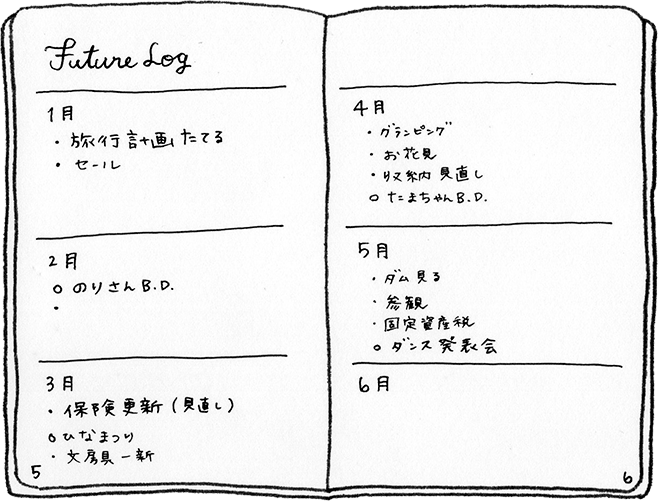 Future Log
1月
・旅行計画たてる
・セール
2月
○ のりさんB.D.
・
3月
・保険更新(見直し)
○ ひなまつり
・文房具一新
5
4月
・グランピング
・お花見
・収納見直し
○ たまちゃんB.D.
5月
・ダム見る
・参観
・固定資産税
○ ダンス発表会
6月
6